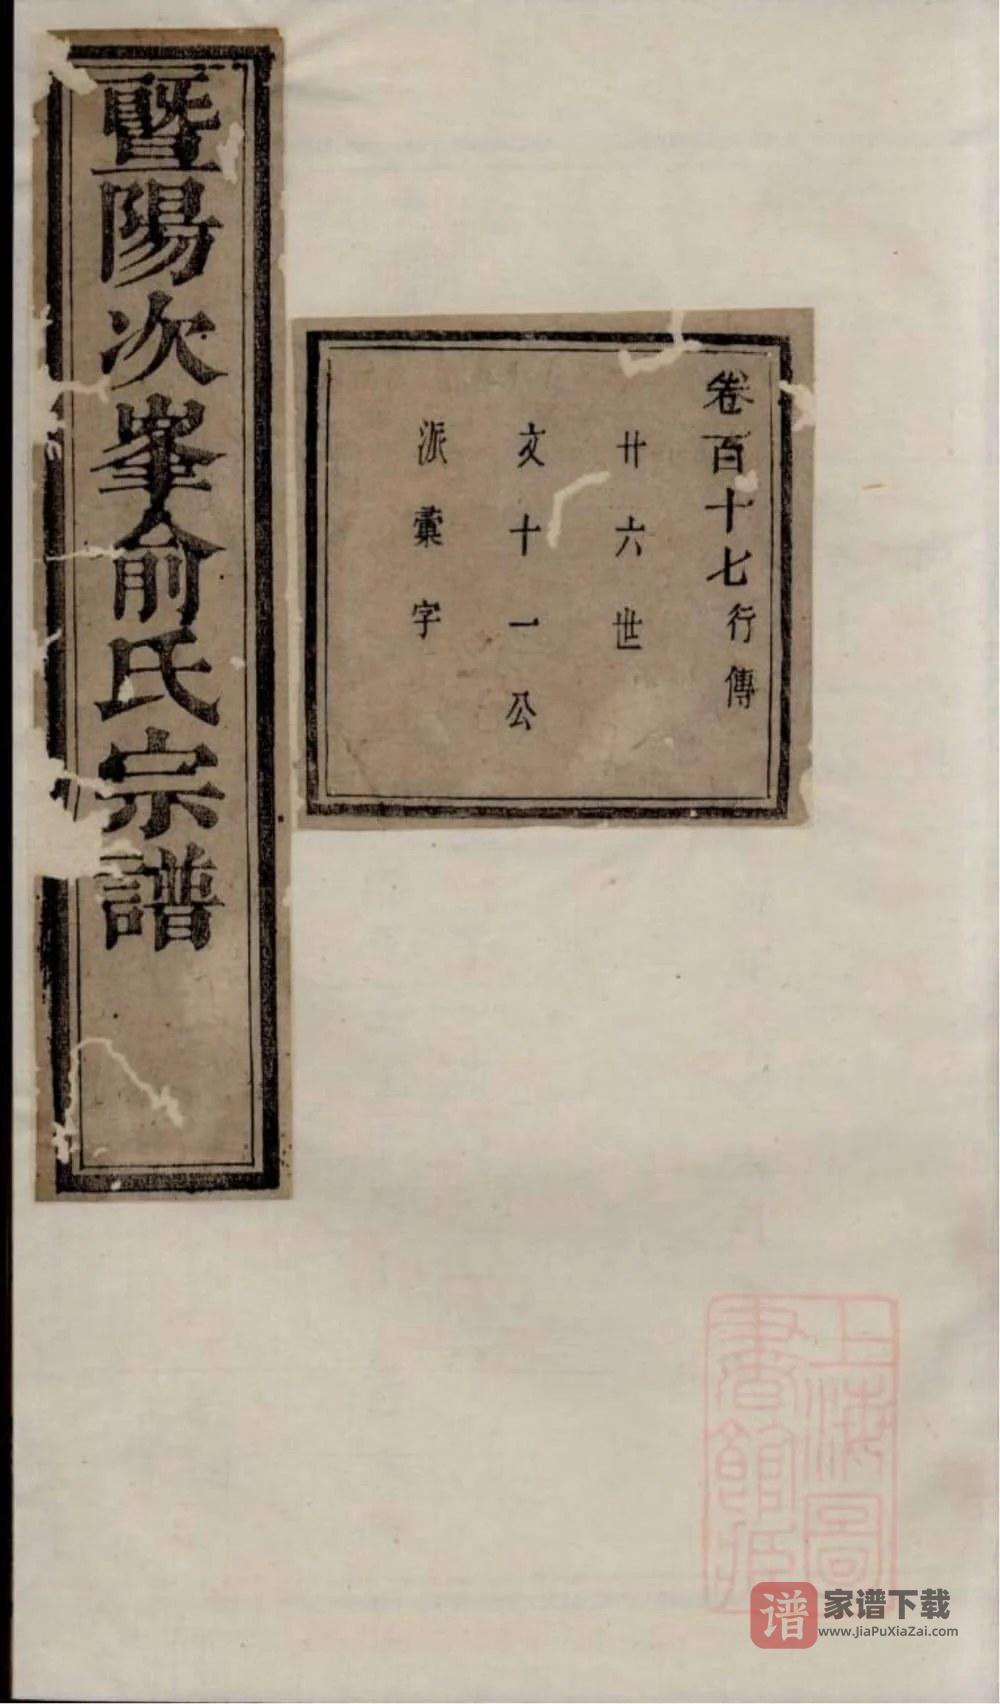 暨陽次峯俞氏宗譜
卷百十七行傳
廿六世
文十一公
派彙字
上海圖
書館藏
谱
家谱下载
www.JiaPuXiaZai.com